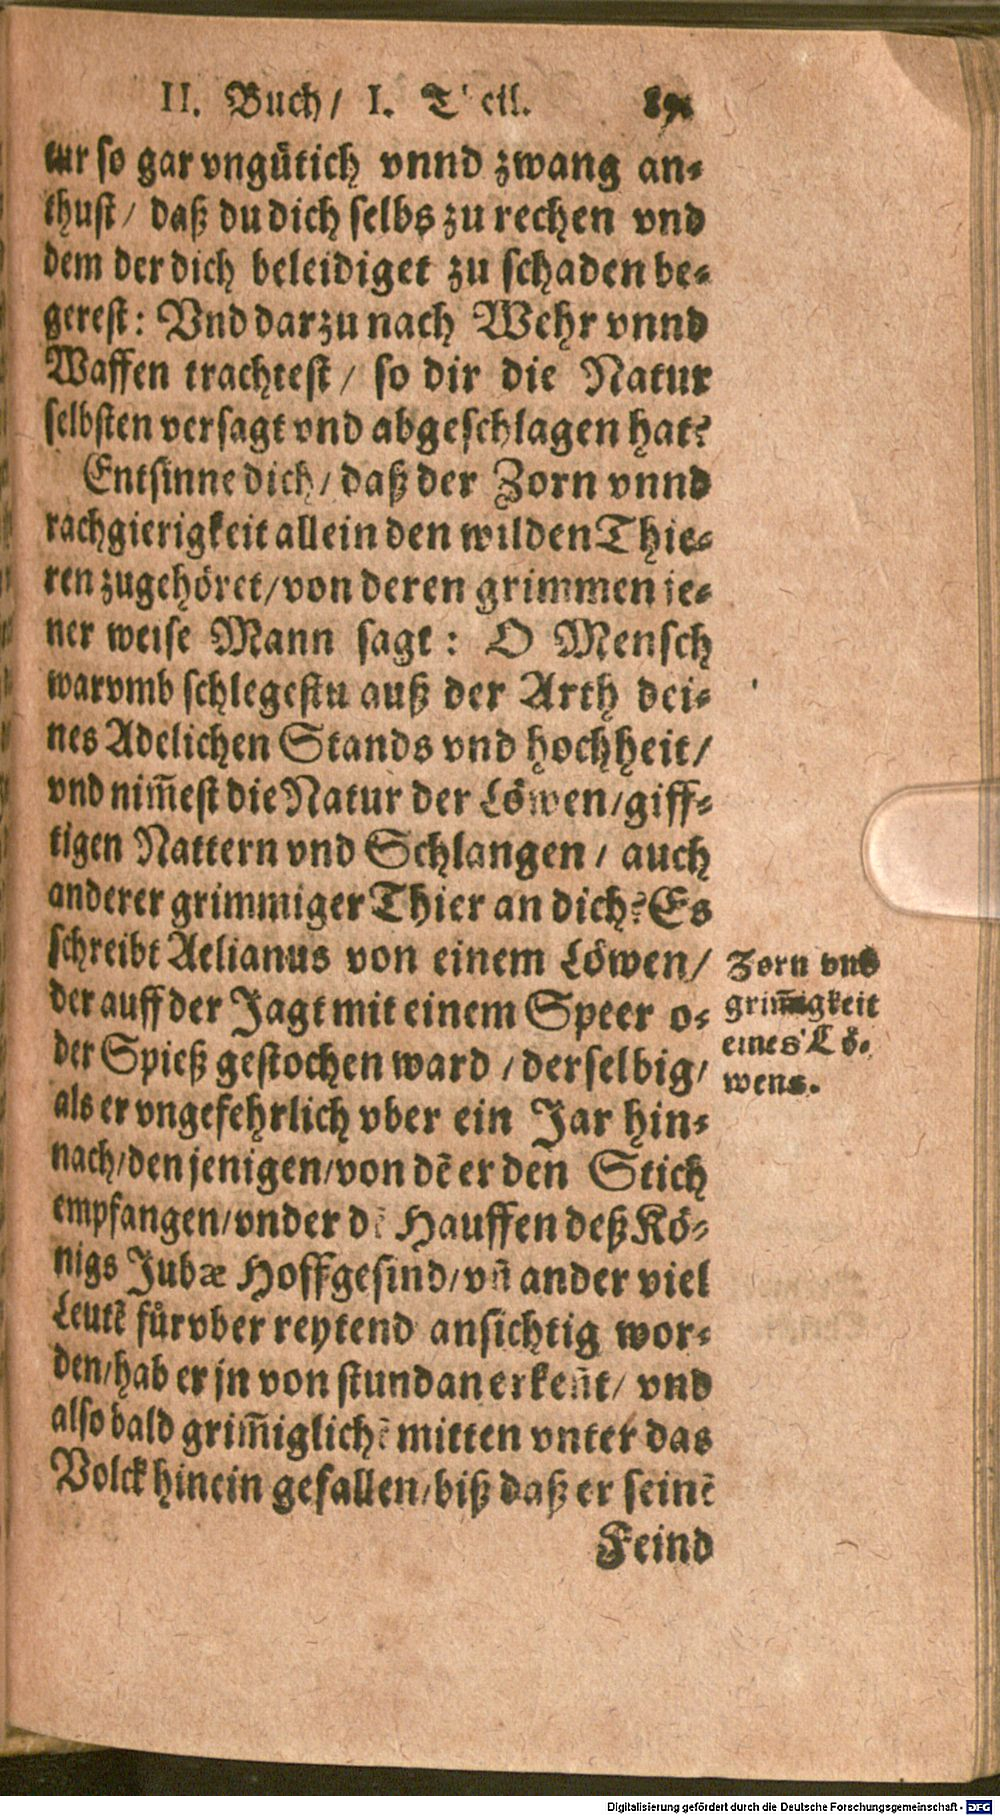 II. Buch/ I. Teil. 891
tur so gar vngütich vnnd zwang an-
thust/ daß du dich selbs zu rechen vnd
dem der dich beleidiget zu schaden be-
gerest: Vnd darzu nach Wehr vnnd
Waffen trachtest/ so dir die Natur
selbsten versagt vnd abgeschlagen hat?
Entsinne dich/ daß der Zorn vnnd
rachgierigkeit allein den wilden Thie-
ren zugehöret/von deren grimmen je-
ner weise Mann sagt: O Mensch
warvmb schlegestu auß der Arth dei-
nes Adelichen Stands vnd hochheit/
vnd nim̄est die Natur der Löwen/giff-
tigen Nattern vnd Schlangen/ auch
anderer grimmiger Thier an dich? Es
schreibt Aelianus von einem Löwen/
der auff der Jagt mit einem Speer o-
der Spieß gestochen ward/derselbig/
als er vngefehrlich vber ein Jar hin-
nach/den jenigen/von dē er den Stich
empfangen/vnder dē Hauffen deß Kö-
nigs Jubæ Hoffgesind/vn̄ ander viel
Leutē fürvber reytend ansichtig wor-
den/hab er jn von stund an erken̄t/ vnd
also bald grim̄iglichē mitten vnter das
Volck hinein gefallen/biß daß er seinē
Feind
Zorn vnd
grim̄igkeit
eines Lö-
wens.
Digitalisierung gefördert durch die Deutsche Forschungsgemeinschaft - DFG